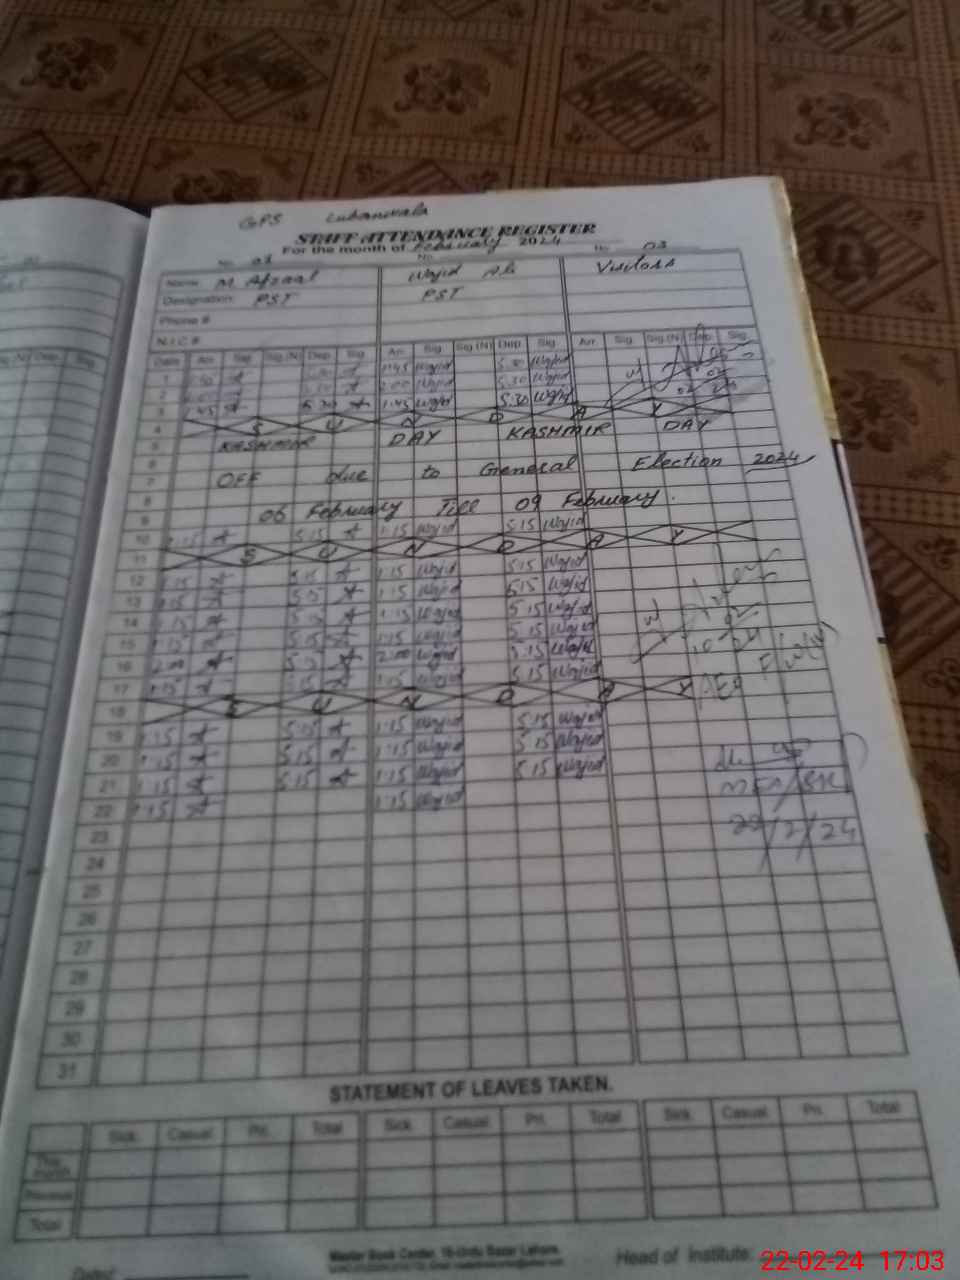 GPS Lubanwala
STAFF ATTENDANCE REGISTER
For the month of February 2024
No. 03
Name: M Afzaal Wajid Ali Visitors
Designation: PST PST
Phone #
N.I.C #
Date Arr. Sig. Sig.(N) Dep. Sig. Arr. Sig. Sig.(N) Dep. Sig. Arr. Sig. Sig.(N) Dep. Sig.
1 1:45 Wajid 5.30 Wajid
2 2:00 Wajid 5.30 Wajid
3 1:45 5.30 1:45 Wajid 5.30 Wajid
4 S U N D A Y
5 KASHMIR DAY KASHMIR DAY
6
7 OFF due to General Election 2024
8
9 06 February Till 09 February.
10 1:15 5:15 1:15 Wajid 5.15 Wajid
11 S U N D A Y
12 1:15 5:15 1:15 Wajid 5.15 Wajid
13 1:15 5:15 1:15 Wajid 5.15 Wajid
14 1:15 5:15 1:15 Wajid 5.15 Wajid
15 1:15 5:15 1:15 Wajid 5.15 Wajid
16 2:00 5:15 2:00 Wajid 5.15 Wajid
17 1:15 5:15 1:15 Wajid 5.15 Wajid
18 S U N D A Y
19 1:15 5:15 1:15 Wajid 5.15 Wajid
20 1:15 5:15 1:15 Wajid 5.15 Wajid
21 1:15 5:15 1:15 Wajid 5.15 Wajid
22 1:15 1:15 Wajid
22/2/24
23
24
25
26
27
28
29
30
31
STATEMENT OF LEAVES TAKEN.
Sick. Casual. Pri. Total Sick. Casual. Pri. Total Sick. Casual. Pri. Total
This month
Previous
Total
Master Book Center, 16-Urdu Bazar Lahore.
Head of Institute:
22-02-24 17:03